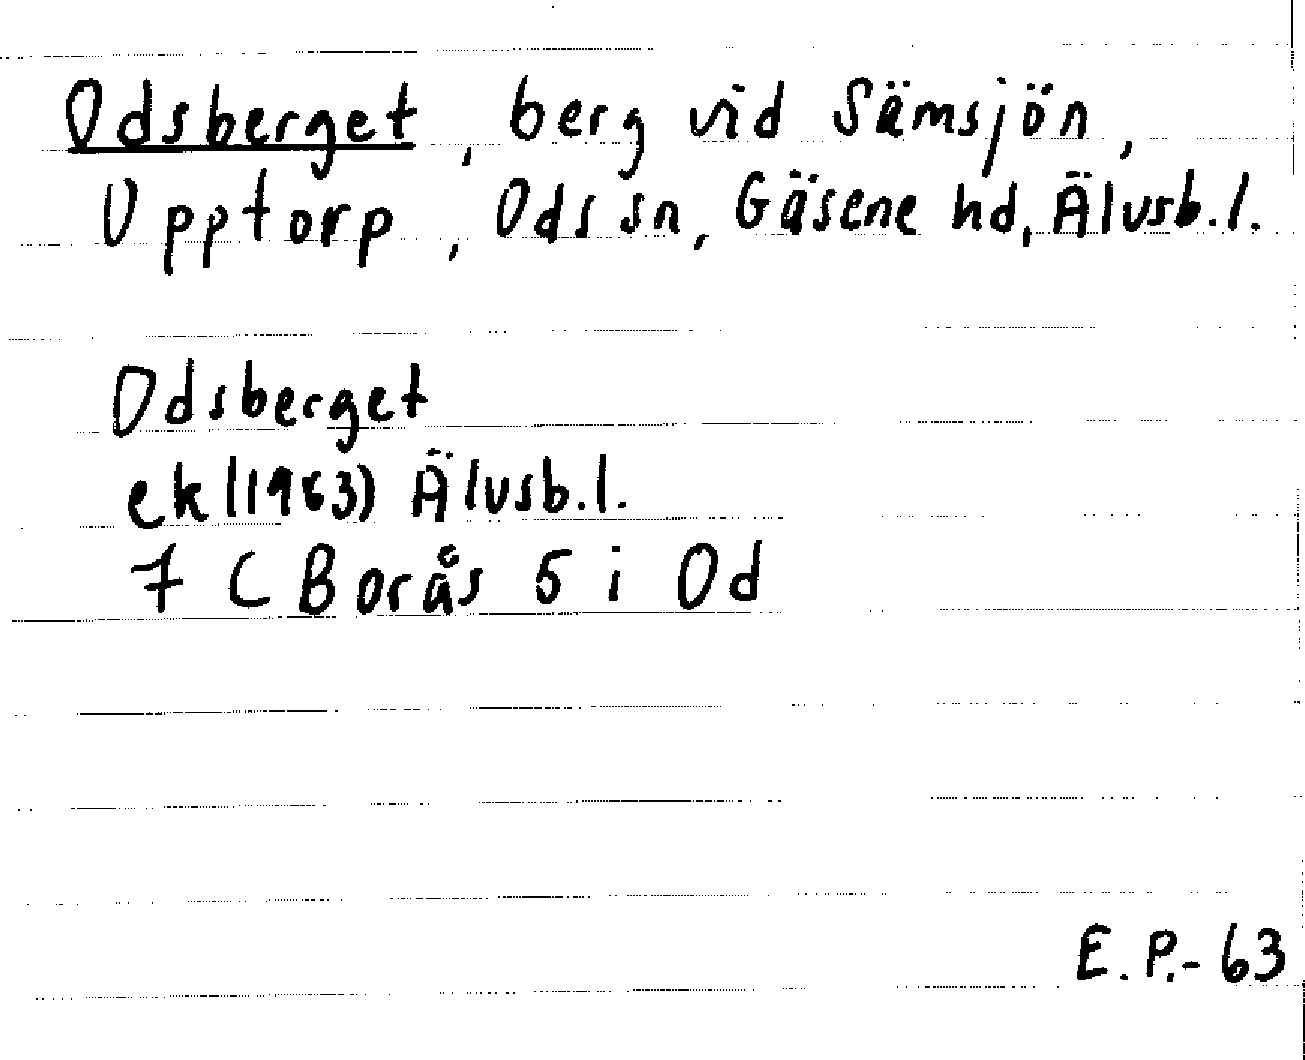 Odsberget, berg vid Sämsjön,
Upptorp, Ods sn, Gäsene hd, Älvsb.l.
Odsberget
ek(1963) Älvsb.l.
7 C Borås 5 i Od
E.P.-63